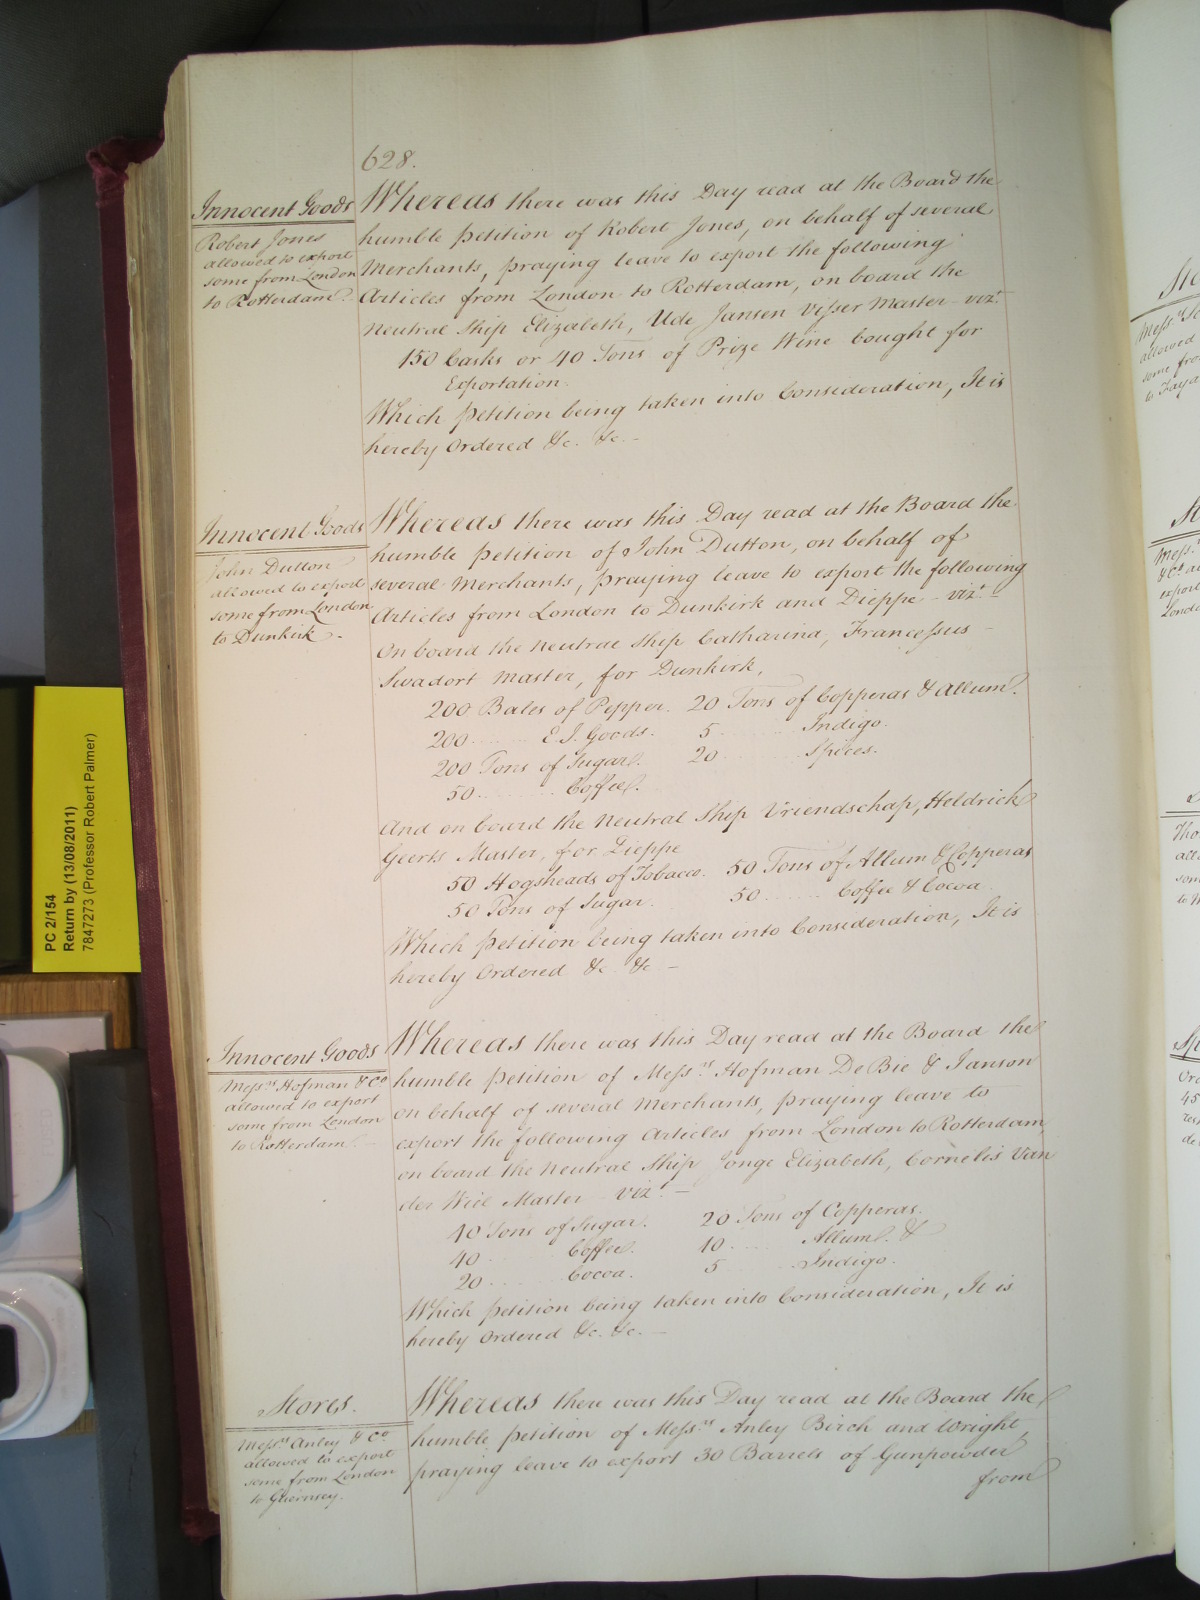 628.
Innocent Goods
Robert Jones
allowed to export
some from London
to Rotterdam
Whereas there was this Day read at the Board the
humble Petition of Robert Jones, on behalf of several
Merchants, praying leave to export the following
Articles from London to Rotterdam, on board the
Neutral Ship Elizabeth, Ude Jansen Visser Master viz.t
150 Casks or 40 Tons of Prize Wine bought for
Exportation.
Which Petition being taken into Consideration, It is
hereby Ordered &c. &c. -
Innocent Goods
John Dutton
allowed to export
some from London
to Dunkirk.
Whereas there was this Day read at the Board the
humble Petition of John Dutton, on behalf of
several Merchants, praying leave to export the following
Articles from London to Dunkirk and Dieppe viz.t
On board the Neutral Ship Catharina, Francessus
Swadort Master, for Dunkirk,
200 Bales of Pepper. 20 Tons of Copperas & Allum.
200 ...... E.I. Goods. 5 ...... Indigo.
200 Tons of Sugar. 20 ...... Spices.
50 ...... Coffee.
And on board the Neutral Ship Vriendschap, Heldrick
Geerts Master, for Dieppe
50 Hogsheads of Tobacco. 50 Tons of Allum & Copperas
50 Tons of Sugar. 50 ...... Coffee & Cocoa.
Which Petition being taken into Consideration, It is
hereby Ordered &c. &c. -
Innocent Goods
Mess.rs Hofman & Co
allowed to export
some from London
to Rotterdam. -
Whereas there was this Day read at the Board the
humble Petition of Mess.rs Hofman De Bie & Janson
on behalf of several Merchants, praying leave to
export the following Articles from London to Rotterdam,
on board the Neutral Ship Jonge Elizabeth, Cornelis Van
der Wiel Master viz.t -
40 Tons of Sugar. 20 Tons of Copperas.
40 ...... Coffee. 10 ...... Allum. &
20 ...... Cocoa. 5 ...... Indigo.
Which Petition being taken into Consideration, It is
hereby Ordered &c. &c. -
Stores.
Mess.rs Anley & Co
allowed to export
some from London
to Guernsey.
Whereas there was this Day read at the Board the
humble Petition of Mess.rs Anley Birch and Wright,
praying leave to export 30 Barrels of Gunpowder
from
PC 2/154
Return by (13/08/2011)
7847273 (Professor Robert Palmer)